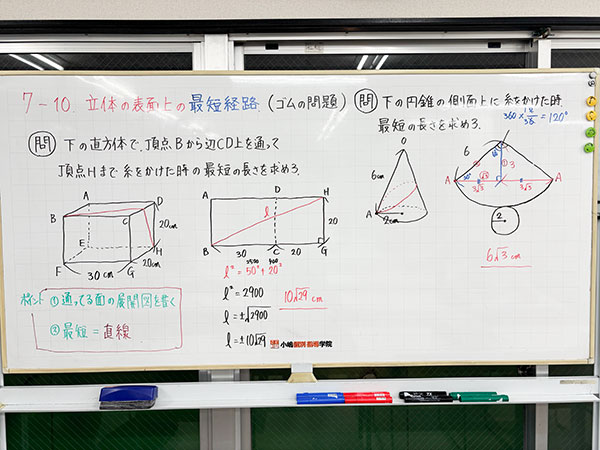 7-10. 立体の表面上の最短経路 (ゴムの問題)
問 下の直方体で、頂点Bから辺CD上を通って
頂点Hまで糸をかけた時の最短の長さを求めろ.
A
D
B
C
20cm
E
H
F
30cm
G
20cm
A
D
H
ℓ
20
B
30
C
20
G
2500 400
ℓ² = 50² + 20²
ℓ² = 2900
ℓ = ±√2900
ℓ = ±10√29
10√29 cm
①通ってる面の展開図を書く
②最短 = 直線
問 下の円錐の側面上に糸をかけた時、
最短の長さを求めろ.
360 × = 120°
O
6cm
A
2cm
6
① 3
② √3
A
3√3
3√3
A
2
6√3 cm
小嶋個別指導学院